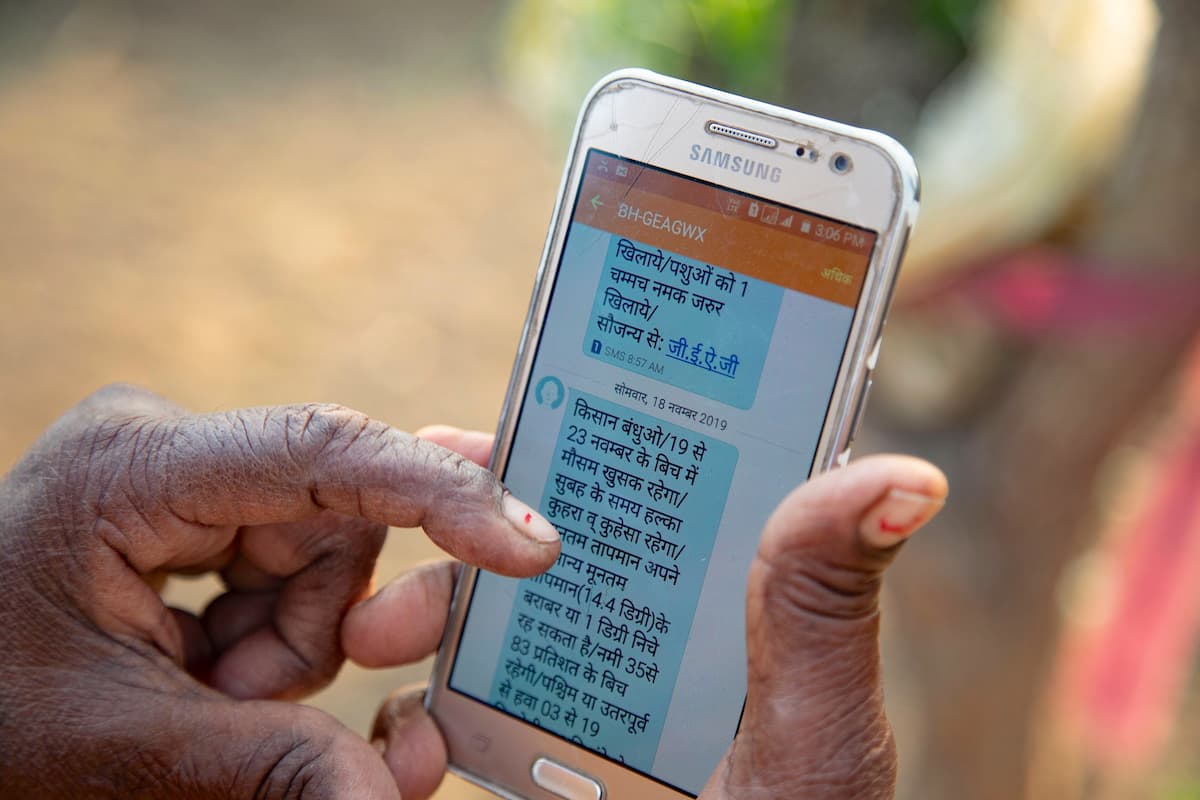 SAMSUNG
3:06 PM
BH-GEAGWX
अधिक
खिलाये/पशुओं को 1
चम्मच नमक जरुर
खिलाये/
सौजन्य से: जी.ई.ऐ.जी
1 SMS 8:57 AM
सोमवार, 18 नवम्बर 2019
किसान बंधुओ/19 से
23 नवम्बर के बिच में
मौसम खुसक रहेगा/
सुबह के समय हल्का
कुहरा व् कुहेसा रहेगा/
तापमान अपने
मूनतम
(14.4 डिग्री)के
बराबर या 1 डिग्री निचे
रह सकता है/नमी 35से
83 प्रतिशत के बिच
रहेगी/पश्चिम या उतरपूर्व
से हवा 03 से 19